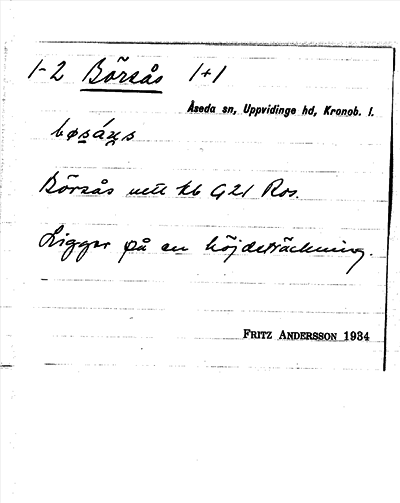 1-2 Börsås 1+1
Åseda sn, Uppvidinge hd, Kronob. l.
Börsås utt kb G21 Ros.
Ligger på en höjdsträckning.
FRITZ ANDERSSON 1934